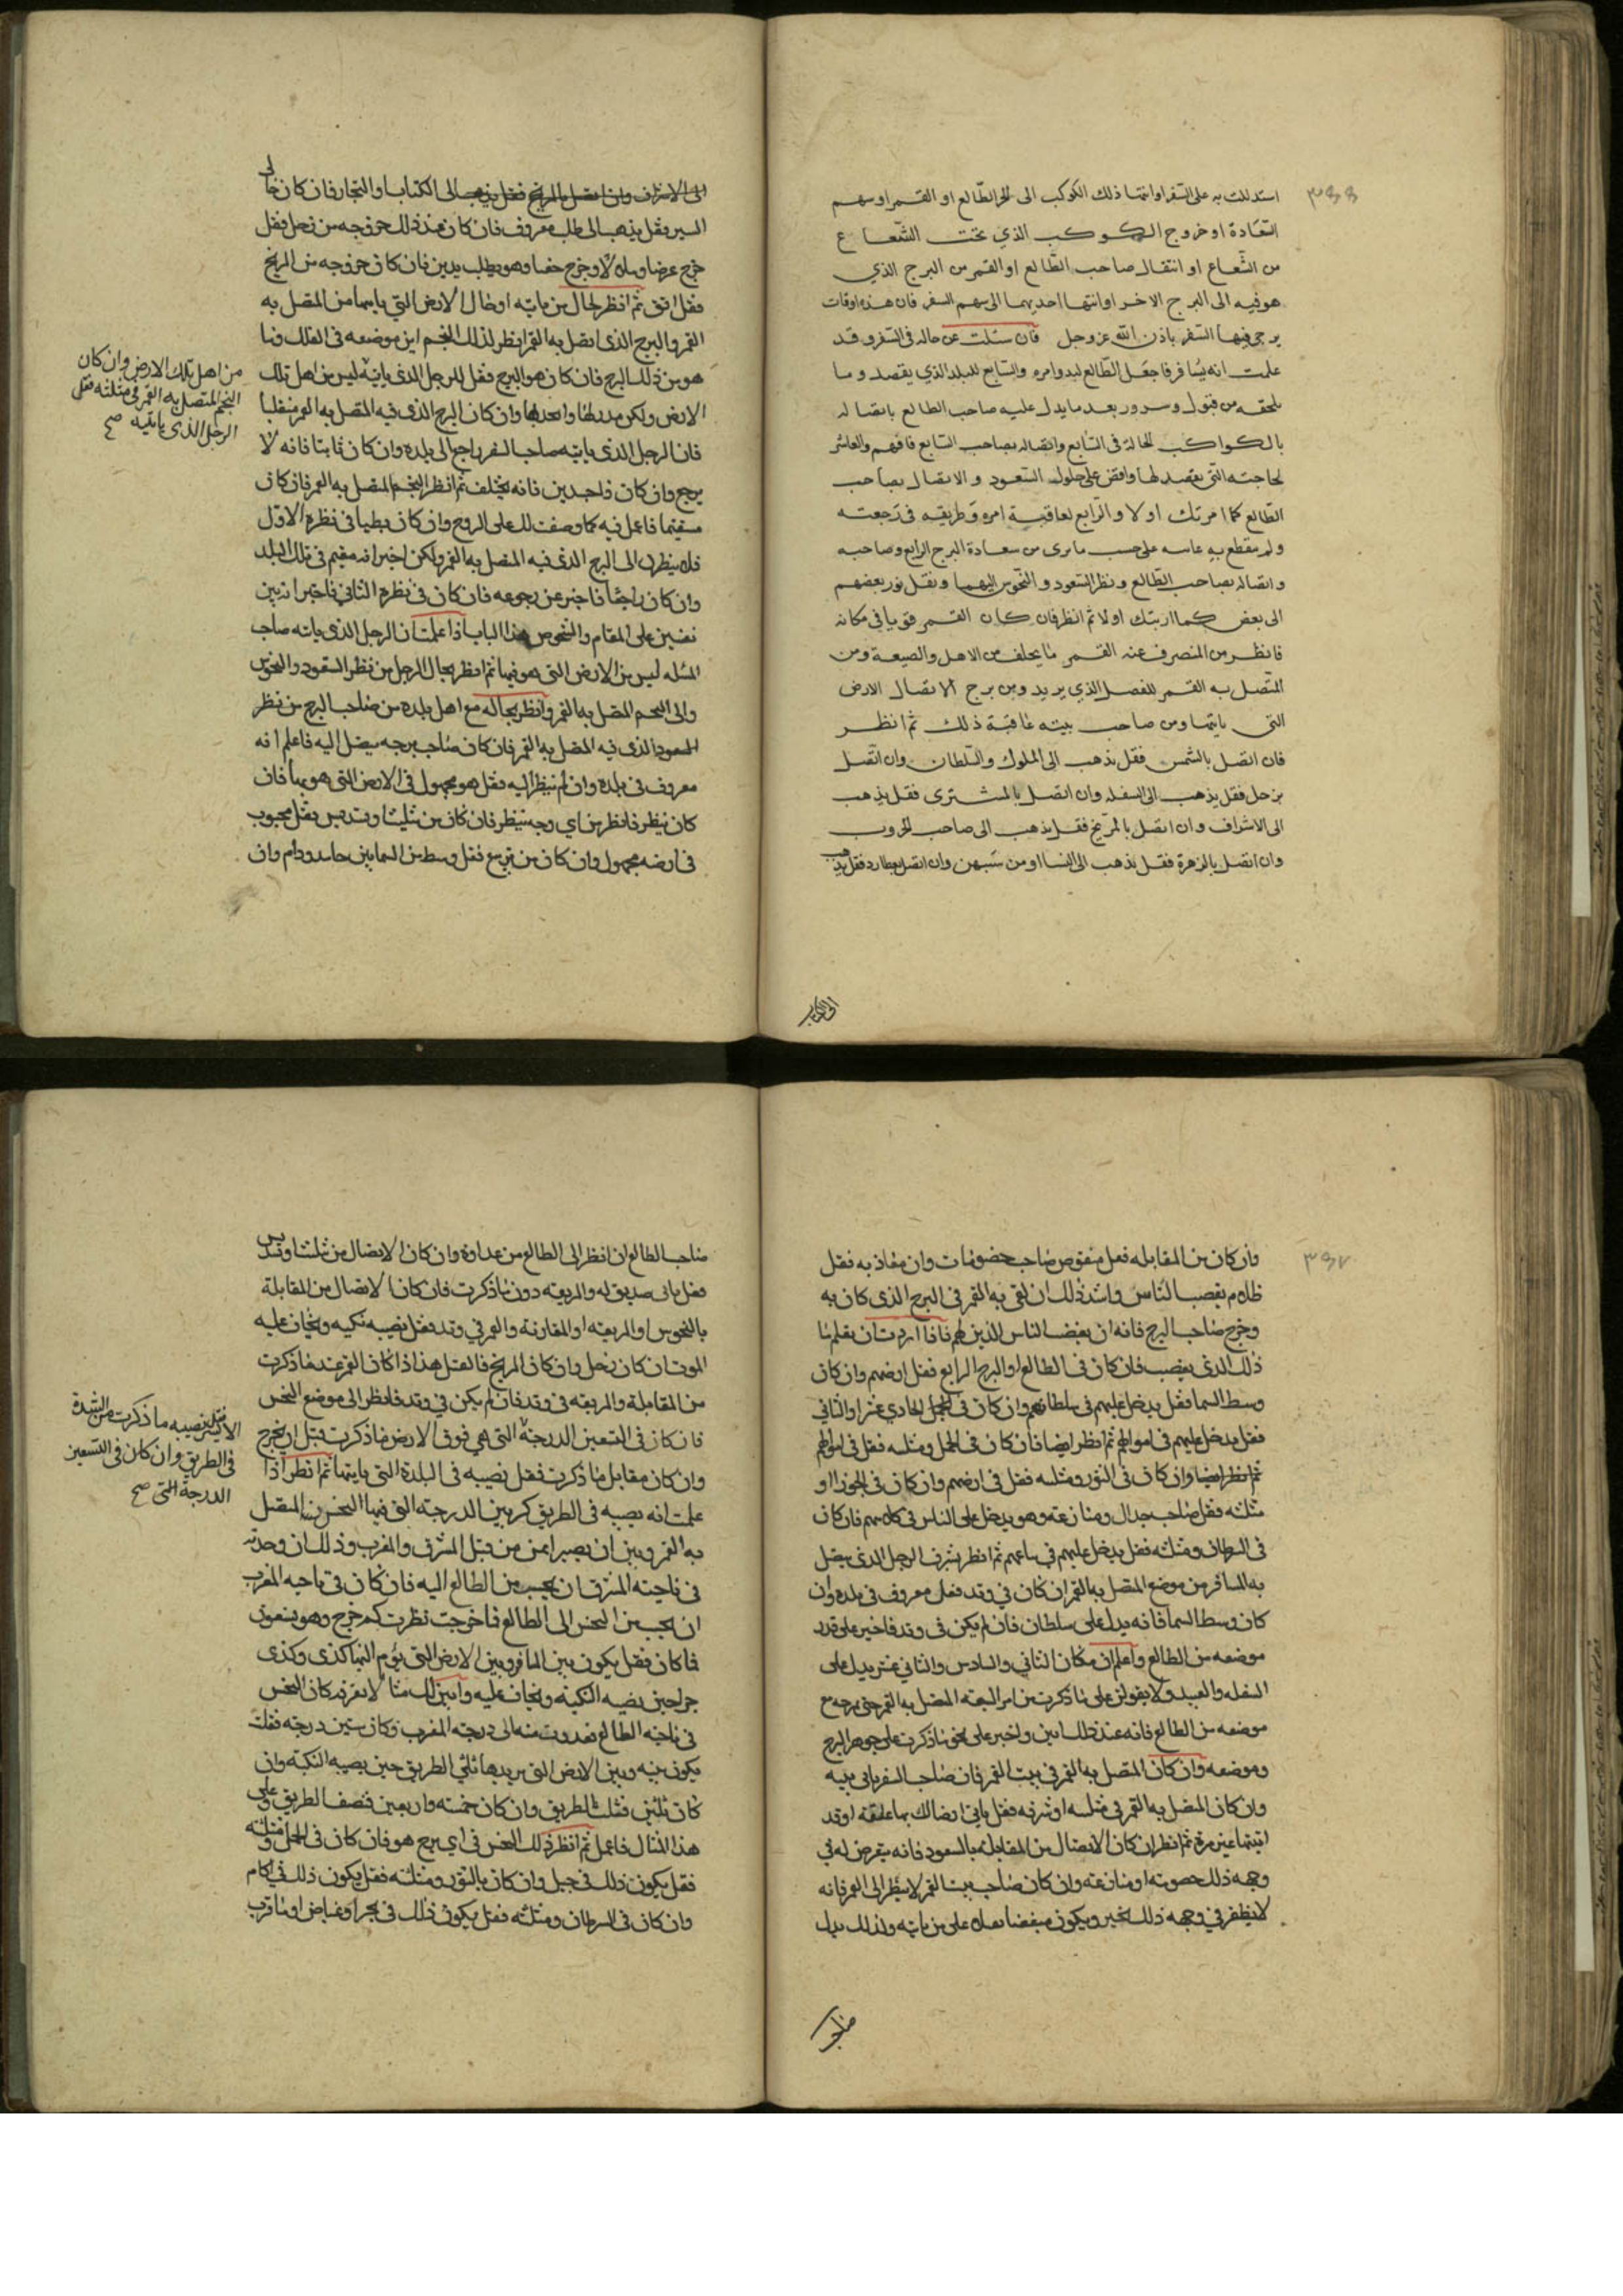 استدللت به على السفر او انتهاء ذلك الكوكب الى جزء الطالع او القمر او سهم
السعادة او خروج الكوكب الذي تحت الشعاع
من الشعاع او انتقال صاحب الطالع او القمر من البرج الذي
هو فيه الى البرج الاخر او انتهاء احديهما الى سهم السفر فان هذه اوقات
يرجى فيها السفر باذن الله عز وجل فان سئلت عن حاله في السفر وقد
علمت انه يسافر فاجعل الطالع لبدو امره والسابع للبلد الذي يقصد وما
يلحقه من قبول وسرور بعد ما يدل عليه صاحب الطالع باتصاله
بالكواكب الحالة في السابع واتصاله بصاحب السابع فافهم والعاشر
لحاجته التي يقصد لها واقض على حلول السعود والاتصال بصاحب
الطالع كما امرتك اولا والرابع لعاقبة امره وطريقه في رجعته
على حسب ما ترى من سعادة البرج الرابع وصاحبه
واتصاله بصاحب الطالع ونظر السعود والنحوس اليهما ونقل نور بعضهم
الى بعض كما اريتك اولا ثم انظر فان كان القمر قويا في مكانه
فانظر من المنصرف عنه القمر ما يخلف من الاهل والضيعة ومن
المتصل به القمر للفصل الذي يريد ومن برج الاتصال الارض
التي ياتيها ومن صاحب بيته عاقبة ذلك ثم انظر
فان اتصل بالشمس فقل يذهب الى الملوك والسلطان وان اتصل
بزحل فقل يذهب الى السفله وان اتصل بالمشترى فقل يذهب
الى الاشراف وان اتصل بالمريخ فقل يذهب الى صاحب الحروب
وان اتصل بالزهرة فقل يذهب الى النسا او من شبههن وان اتصل بعطارد فقل يذهب
الى الكتاب
الى الاشراف وان اتصل بالمريخ فقل يذهب الى الكتاب او التجار فان كان خالى
السير فقل يذهب الى طلب معروف فان كان عند ذلك خروجه من زحل فقل
خرج وهو يطلب بدين فان كان خروجه من المريخ
فقل ابق ثم انظر لحال من ياتيه او حال الارض التي ياتيها من المتصل به
القمر والبرج الذى اتصل به القمر انظر لذلك النجم اين موضعه في الفلك وما
هو من ذلك البرج فان كان هو البرج فقل للرجل الذى ياتيه ليس من اهل تلك
من اهل تلك الارض وان كان
النجم المتصل به القمر في مثلثه فقل
الرجل الذى ياتيه صح
الارض ولكن وان كان البرج الذى فيه المتصل به القمر منقلبا
فان الرجل الذى ياتيه صاحب السفر راجع الى بلده وان كان ثابتا فانه لا
يرجع وان كان ذا جسدين فانه يختلف ثم انظر النجم المتصل به القمر فان كان
مستقيما فاعمل فيه كما وصفت لك على الروح وان كان بطيا في نظره الاول
فلا ينظرن الى البرج الذى فيه المتصل به القمر ولكن اخبر انه مقيم في تلك البلد
وان كان راجعا فاخبر عن رجوعه فان كان في نظره الثاني فاخبر انه بين
نفسين على المقام والشخوص هذا الباب اذا علمت ان الرجل الذى ياته صاحب
المسله ليس من الارض التى هو فيها ثم انظر بحال الرجل من نظر السعود والنحوس
والى النجم المتصل به القمر وانظر بحاله مع اهل بلده من صاحب البرج من نظر
السعود الذى فيه المتصل به القمر فان كان صاحب برجه يتصل اليه فاعلم انه
معروف في بلده وان لم ينظر اليه فقل هو مجهول في الارض التى هو بها فان
كان ينظر فانظر من اي وجه ينظر فان كان من تثليث او تسديس فقل محبوب
في ارضه مجهول وان كان من تربيع فقل وسط من الحالين حامد وذام وان
وان كان من المقابله فقل منقوص صاحب خصومات وان فقل
ظلام يغصب الناس واشد ذلك ان لقي به القمر في البرج الذى كان به
وخرج صاحب البرج فانه ان يغصب الناس الذين لهم فاذا اردت ان تعلم ما
ذلك الذى يغصب فان كان في الطالع او البرج الرابع فقل ارضهم وان كان
وسط السما فقل يدخل عليهم في سلطانهم وان كان في الحادي عشر او الثاني
فقل يدخل عليهم في اموالهم ثم انظر ايضا فان كان في الحمل ومثلثه فقل في اموالهم
ثم انظر ايضا وان كان في الثور ومثلثه فقل في ارضهم وان كان في الجوزا او
مثلثه فقل صاحب جدال ومنازعه وهو يدخل على الناس في كلامهم فان كان
في السرطان ومثلثه فقل يدخل عليهم في ثم انظر بشرف الرجل الذى يتصل
به المسافر من موضع المتصل به القمر ان كان في وتد فقل معروف في بلده وان
كان وسط السما فانه يدل على سلطان فان لم يكن في وتد فاخبر على قدر
موضعه من الطالع واعلم ان مكان الثاني والسادس والثاني عشر يدل على
السفله والعبيد ولا على ما ذكرت من امر المتصل به القمر حتى يرجع مع
موضعه من الطالع فانه عند ذلك ابين واخبر على نحو ما ذكرت على جوهر البرج
وموضعه وان كان المتصل به القمر في بيت القمر فان صاحب السفر ياتى بيته
وان كان المتصل به القمر في مثلثه او شرفه فقل ياتى ارضا لك بها علقه او قد
اتيتها غير مرة ثم انظر ان كان الاتصال من المقابله بالسعود فانه يتعرض له في
وجهه ذلك خصومه او منازعه وان كان صاحب بيت القمر لا ينظر الى القمر فانه
لا يظفر في وجهه ذلك بخير ويكون على من ياتيه ولذلك يدل
صاحب
صاحب الطالع ان انظر الى الطالع من عداوة وان كان الاتصال من تثليث او تسديس
فقل ياتى صديق له والتربيعه دون ما ذكرت فان كان الاتصال من المقابلة
بالنحوس او التربيعه او المقارنة والقمر في وتد فقل تصيبه نكبه ويخاف عليه
الموت ان كان زحل وان كان المريخ فالقتل هذا اذا كان القمر عند ما ذكرت
من المقابلة والتربيعه في وتد فان لم يكن في وتد فانظر الى موضع النحس
فان كان في التسعين الدرجة التى هي فوق الارض ما ذكرت قبل ان يخرج
الايسر فقل تصيبه ما ذكرت من الشدة
فى الطريق وان كان فى التسعين
الدرجة التى صح
وان كان مقابل ما ذكرت فقل تصيبه في البلدة التى ياتيها ثم انظر اذا
علمت انه يصيبه في الطريق كم بين الدرجته التى فيها النحس من المتصل
به القمر وبين ان يصير من قبل المشرق والمغرب وذلك ان وجدته
في ناحيته المشرق ان يحسب من الطالع اليه فان كان في ناحيه المغرب
ان يحسب من النحس الى الطالع فما خرجت نظرت كم خرج وهو من تسعون
فما كان فقل يكون بين المسافر وبين الارض التى يؤم اليها كذى وكذى
جزا حين تصيبه النكبه ويخاف عليه وابين لك مثالا تعرفه كان النحس
في ناحيه الطالع فعددت منه الى درجته المغرب وكان ستين درجه فقلت
يكون بينه وبين الارض التى يريدها ثلثي الطريق حين يصيبه النكبه وان
كان ثلثين فثلث الطريق وان كان خمسه واربعين فنصف الطريق وعلى
هذا المثال فاعمل ثم انظر ذلك النحس في اي برج هو فان كان في الحمل ومثلثه
فقل يكون ذلك في جبل وان كان بالثور ومثلثه فقل يكون ذلك في اكام
وان كان في السرطان ومثلثه فقل يكون ذلك في بحر او غياض او ما قرب